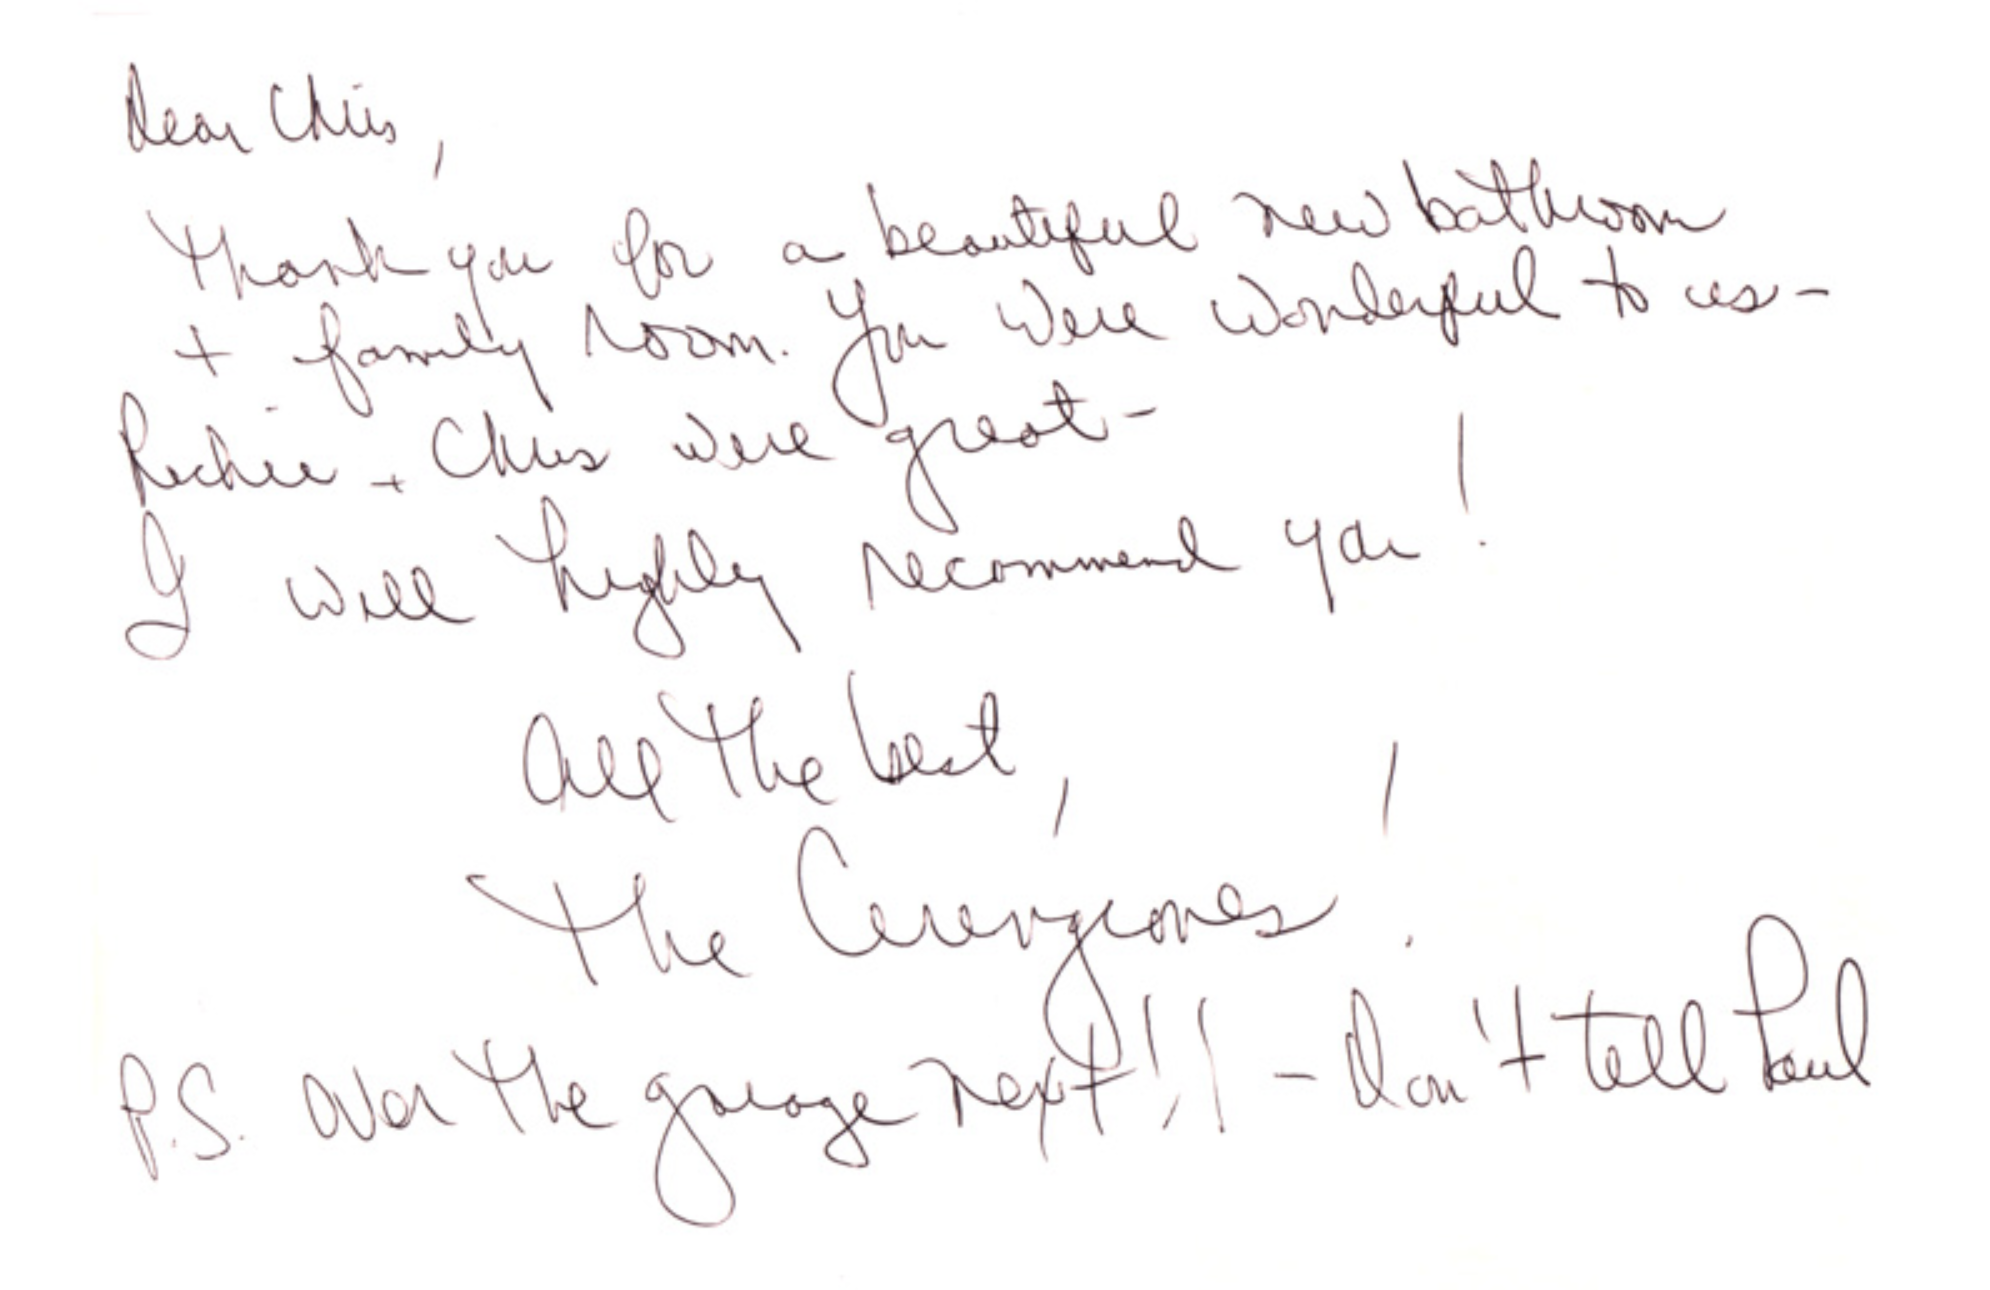 Dear Chris,
Thank you for a beautiful new bathroom
+ family room. You were wonderful to us -
Richie + Chris were great -
I will highly recommend you!
All the best,
The
P.S. Over the garage next!!! - Don't tell Paul